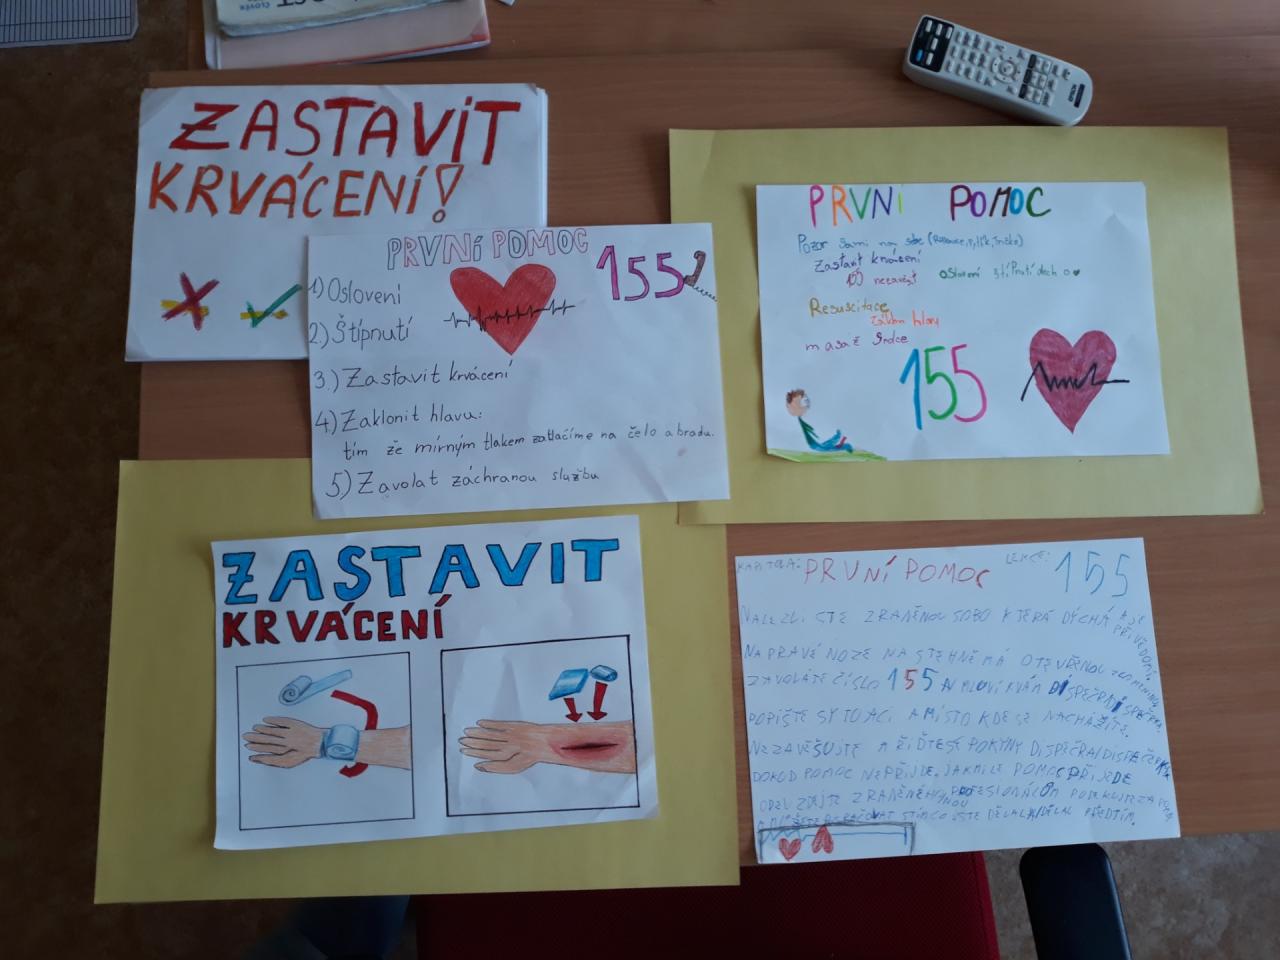 ČLOVĚK
EPSON
ZASTAVIT
KRVÁCENÍ!
PRVNÍ POMOC
155
1) Oslovení
2.) Štípnutí
3.) Zastavit krvácení
4) Zaklonit hlavu:
tím že mírným tlakem zatlačíme na čelo a bradu.
5) Zavolat záchranou službu
PRVNÍ POMOC
Pozor sami na sebe
Zastavit krvácení
Oslovení štípnutí dech
Resuscitace
záklon hlavy
masaž Srdce
155
ZASTAVIT
KRVÁCENÍ
KAPITOLA: PRVNÍ POMOC LEKCE: 155
NALEZLI STE ZRANĚNOU SOBO KTERÁ DÝCHÁ A JE PŘI VĚDOMÍ.
NA PRAVÉ NOZE NA STEHNĚ MÁ OTEVŘENOU
ZAVOLÁTE ČÍSLO 155 MLUVÍ K VÁM DISPEČR/DISPEČRKA
POPIŠTE SYTOACI A MÍSTO KDE SE NACHÁZÍTE.
NEZAVĚŠUJTE A ŘIĎTE SE POKYNY DISPEČRA/DISPEČERKY
DOKUD POMOC NEPŘIJDE. JAKMILE POMOC PŘIJEDE
ZRANĚNÉHO PROFESIONÁLOM
POKRAČOVAT S TÍM CO JSTE DĚLAL/DĚLAL PŘEDTÍM.